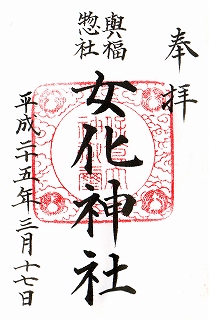 奉拝
與福
惣社
女化神社
平成二十五年三月十七日